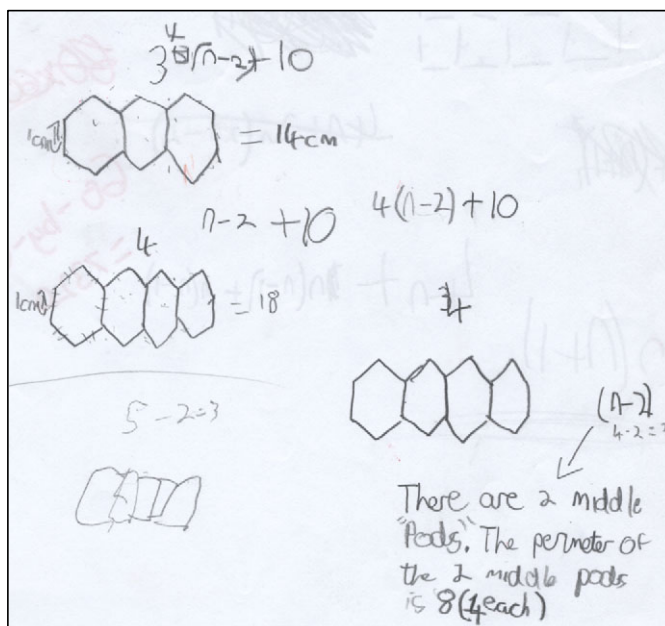 3 4(n-2)+10
1cm = 14cm
n-2 +10
4(n-2)+10
4
1cm = 18
4
5-2=3
(n-2)
4-2=2
There are 2 middle
"Pods". The permeter of
the 2 middle pods
is 8 (4 each)